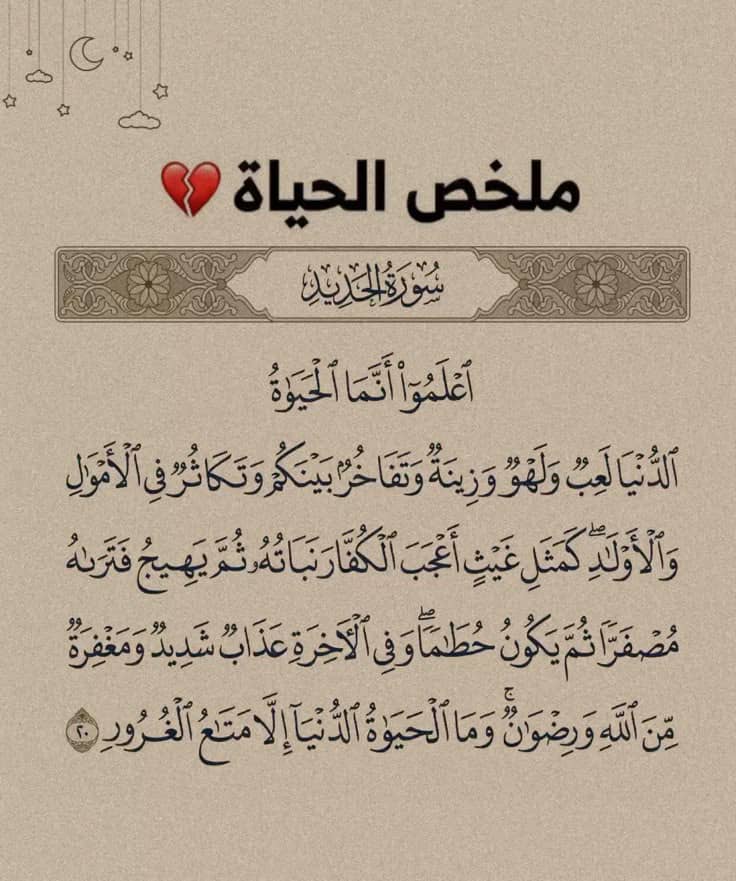 ملخص الحياة 💔
سُورَةُ الحَدِيدِ
ٱعۡلَمُوٓاْ أَنَّمَا ٱلۡحَيَوٰةُ
ٱلدُّنۡيَا لَعِبٞ وَلَهۡوٞ وَزِينَةٞ وَتَفَاخُرُۢ بَيۡنَكُمۡ وَتَكَاثُرٞ فِي ٱلۡأَمۡوَٰلِ
وَٱلۡأَوۡلَٰدِۖ كَمَثَلِ غَيۡثٍ أَعۡجَبَ ٱلۡكُفَّارَ نَبَاتُهُۥ ثُمَّ يَهِيجُ فَتَرَىٰهُ
مُصۡفَرّٗا ثُمَّ يَكُونُ حُطَٰمٗاۖ وَفِي ٱلۡأٓخِرَةِ عَذَابٞ شَدِيدٞ وَمَغۡفِرَةٞ
مِّنَ ٱللَّهِ وَرِضۡوَٰنٞۚ وَمَا ٱلۡحَيَوٰةُ ٱلدُّنۡيَآ إِلَّا مَتَٰعُ ٱلۡغُرُورِ ٢٠